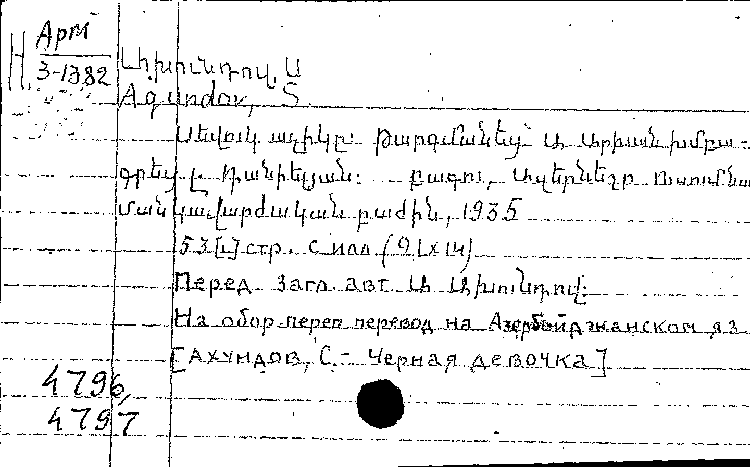 Н Арт
3-1382
Ախունդով, Ս
Agundov, S.
Սևլուկ աղիկը: Թարգմանեց Ա. Արիան խմբա-
գրեց Լ. Դանիելյան: Բագու, Ազերնեշր Ուսումնա
մանկավարժական բաժին, 1935
53[1] стр. с илл (21x14)
Перед загл. авт. Ս. Ախունդով:
На обор. переп. перевод на Азербайджанском яз
[АХУНДОВ, С. - Черная девочка]
4796,
4797